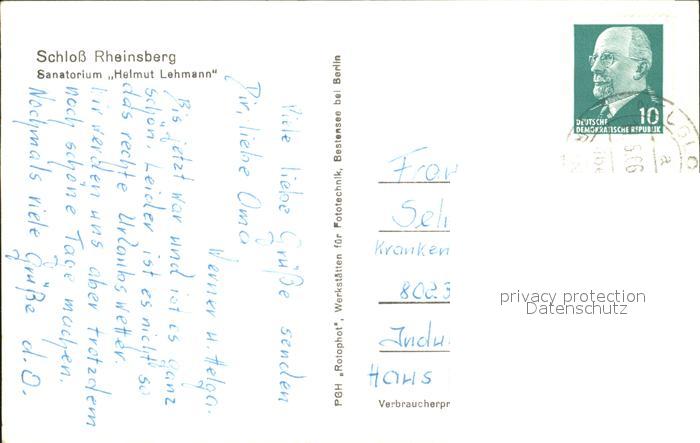 Schloß Rheinsberg
Sanatorium „Helmut Lehmann"
Viele liebe Grüße senden
Dir, liebe Oma
Werner u. Helga.
Bis jetzt war und ist es ganz
schön. Leider ist es nicht so
das rechte Urlaubswetter.
Wir werden uns aber trotzdem
noch schöne Tage machen.
Nochmals viele Grüße d. O.
PGH „Rotophot", Werkstätten für Fototechnik, Bestensee bei Berlin
10
DEUTSCHE
DEMOKRATISCHE REPUBLIK
Frau
Seh
Kranken
8023
Indu
Haus
Verbraucherpr
privacy protection
Datenschutz